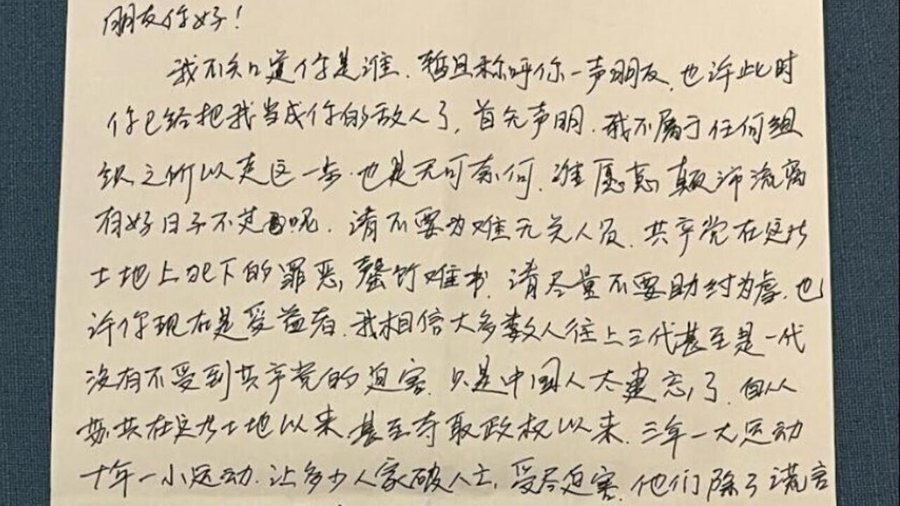 朋友你好！
我不知道你是谁、暂且称呼你一声朋友，也许此时
你已给把我当成你的敌人了，首先声明，我不属于任何组
织之所以走这一步也是无可奈何，谁愿意颠沛流离
有好日子不过呢，请不要为难无关人员，共产党在这片
土地上犯下的罪恶，罄竹难书，请尽量不要助纣为虐，也
许你现在是受益者，我相信大多数人往上三代甚至是一代
没有不受到共产党的迫害，只是中国人太健忘了，自从
苏共在这片土地以来，甚至夺取政权以来，三年一大运动
十年一小运动，让多少人家破人亡，受尽迫害，他们除了谎言